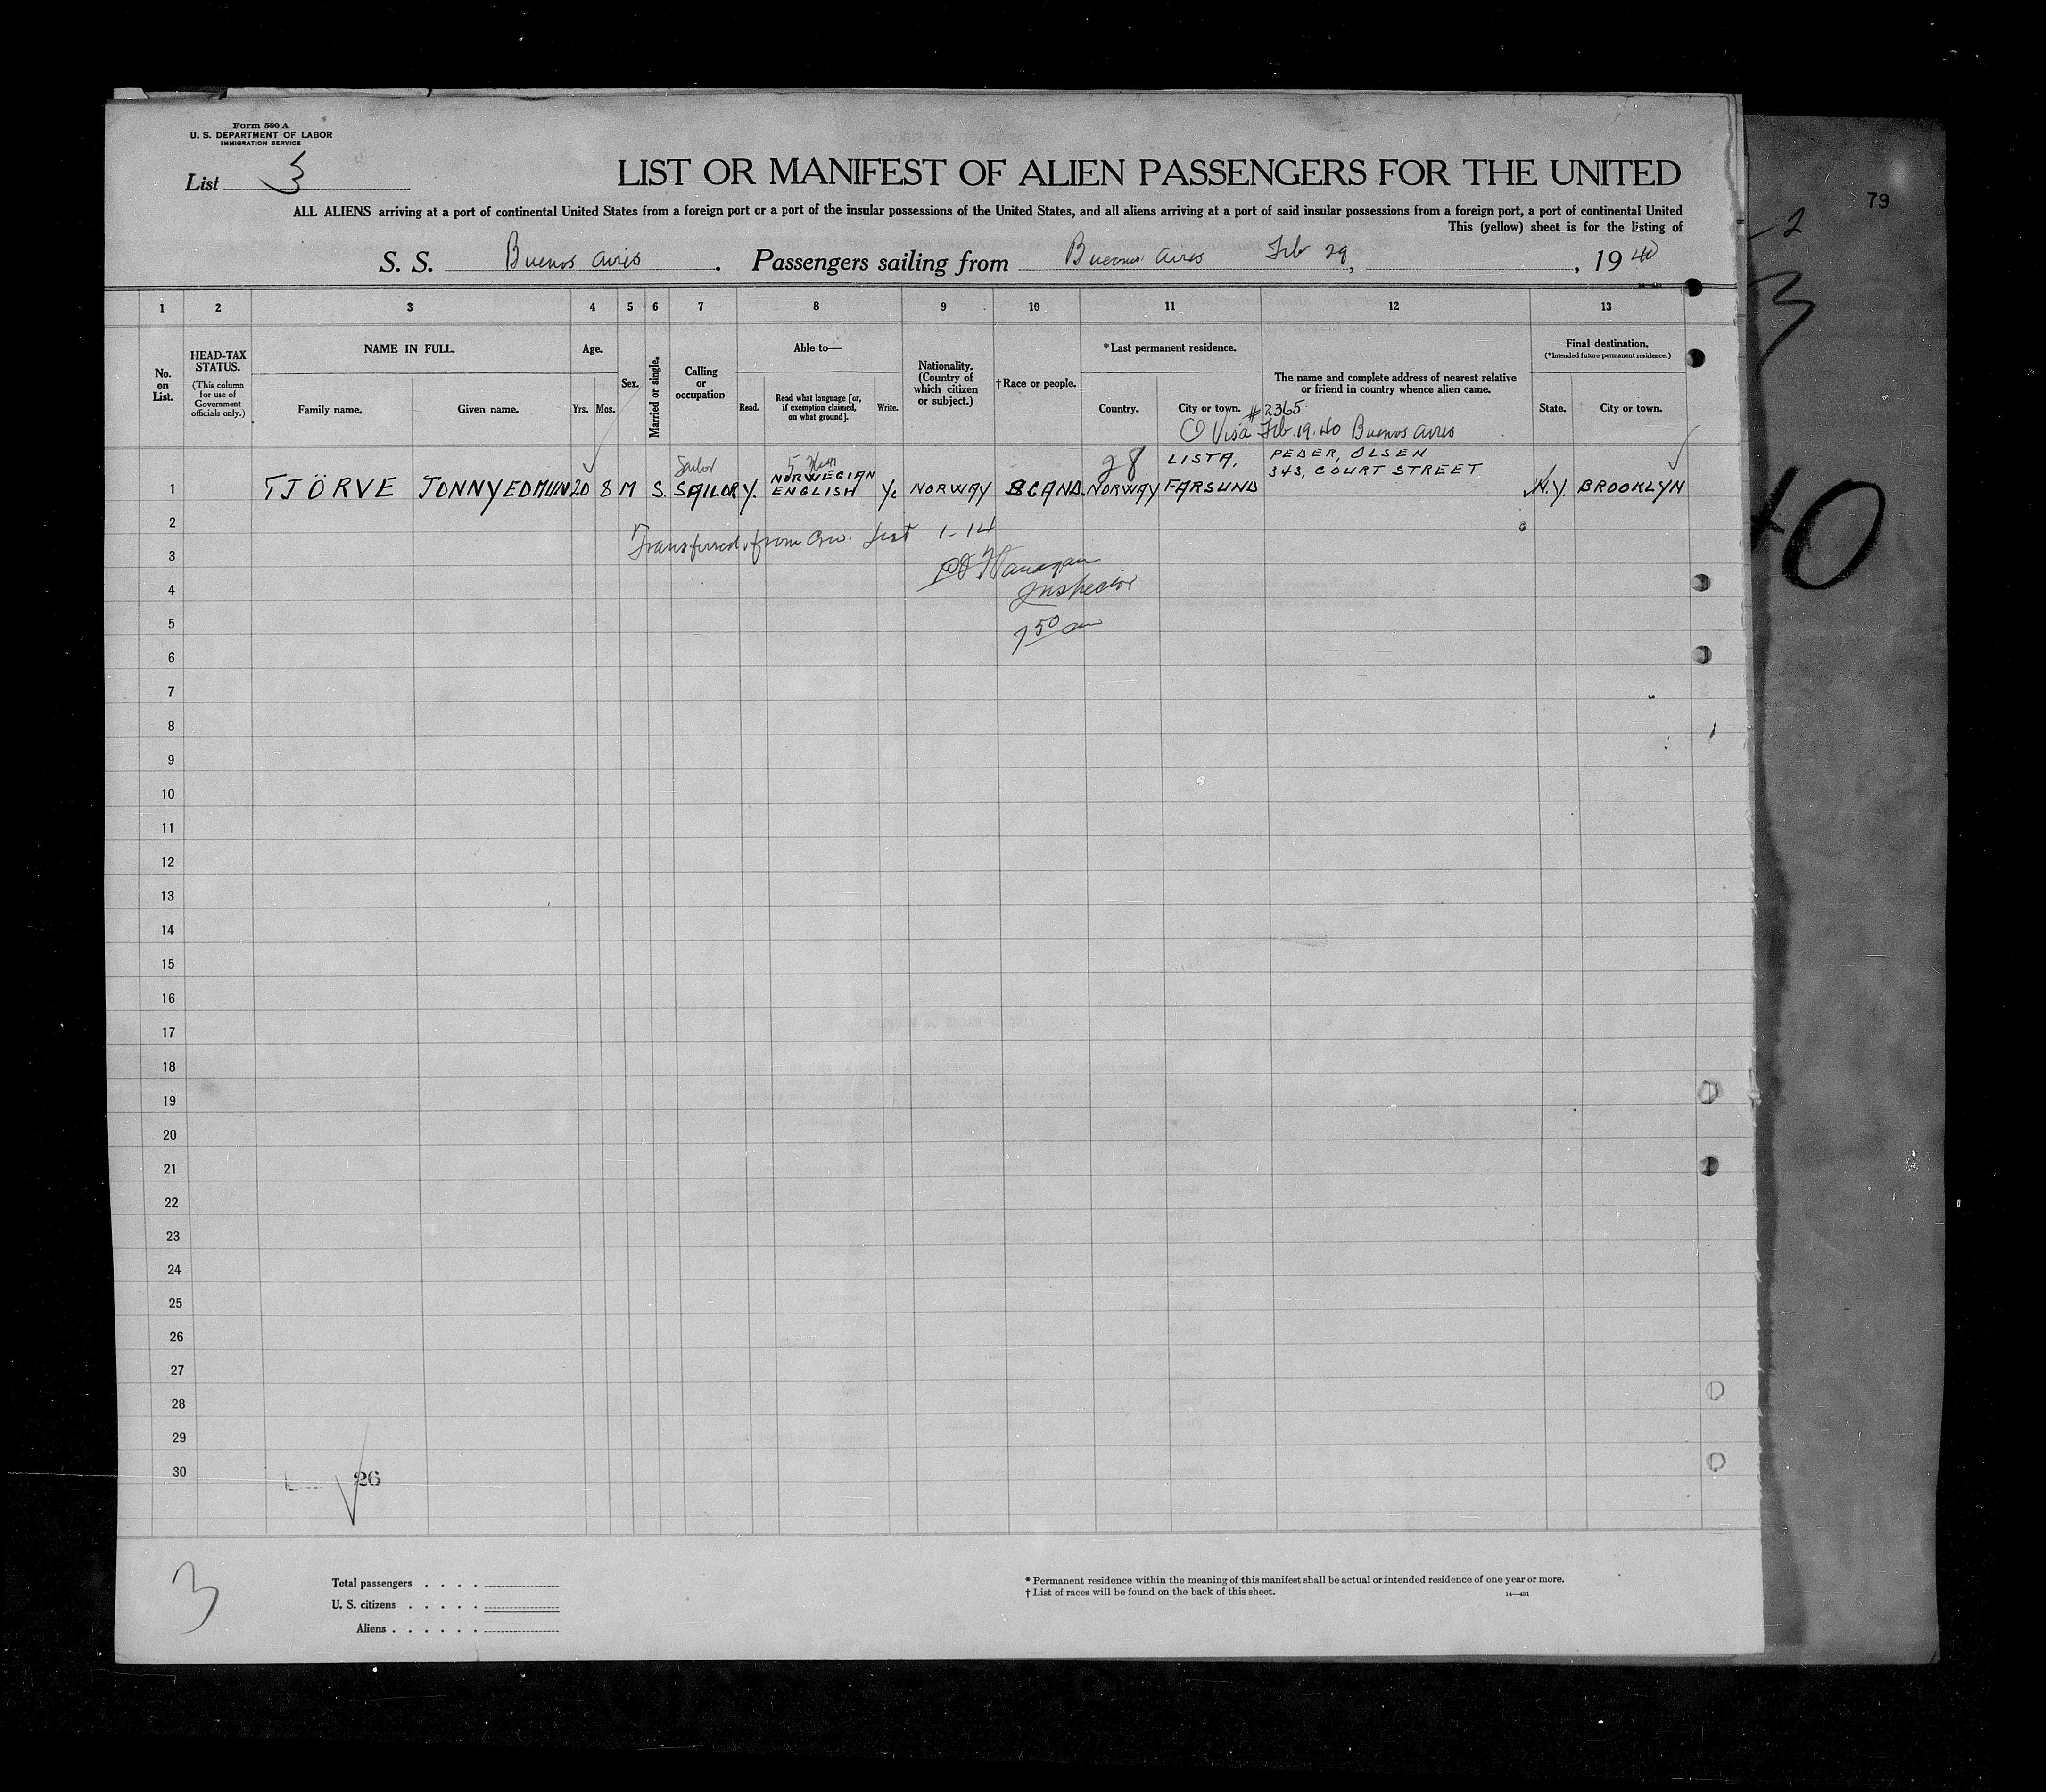 Form 500 A
U. S. DEPARTMENT OF LABOR
IMMIGRATION SERVICE
List 3
LIST OR MANIFEST OF ALIEN PASSENGERS FOR THE UNITED
ALL ALIENS arriving at a port of continental United States from a foreign port or a port of the insular possessions of the United States, and all aliens arriving at a port of said insular possessions from a foreign port, a port of continental United
This (yellow) sheet is for the listing of
S. S. Buenos Aires . Passengers sailing from Buenos Aires Feb 29, , 19 40
79
1 2 3 4 5 6 7 8 9 10 11 12 13
No. on List.
HEAD-TAX STATUS.
(This column for use of Government officials only.)
NAME IN FULL.
Family name. Given name.
Age.
Yrs. Mos.
Sex.
Married or single.
Calling or occupation
Able to—
Read. Read what language [or, if exemption claimed, on what ground]. Write.
Nationality. (Country of which citizen or subject.)
†Race or people.
*Last permanent residence.
Country. City or town.
The name and complete address of nearest relative or friend in country whence alien came.
Final destination.
(*Intended future permanent residence.)
State. City or town.
#2365
Visa Feb. 19. 40 Buenos Aires
Sailor 28 LISTA, PEDER, OLSEN
NORWEGIAN 343, COURT STREET
1 TJÖRVE JONNY EDMUN 20 8 M S. SAILOR Y. ENGLISH Y. NORWAY SCAND. NORWAY FARSUND N.Y. BROOKLYN
2 Transferred from Crew List 1-14
3
4 Inspector
5 7 50 am
6
7
8
9
10
11
12
13
14
15
16
17
18
19
20
21
22
23
24
25
26
27
28
29
30
26
3
Total passengers . . . .
U. S. citizens . . . . .
Aliens . . . . . .
* Permanent residence within the meaning of this manifest shall be actual or intended residence of one year or more.
† List of races will be found on the back of this sheet.
14—431